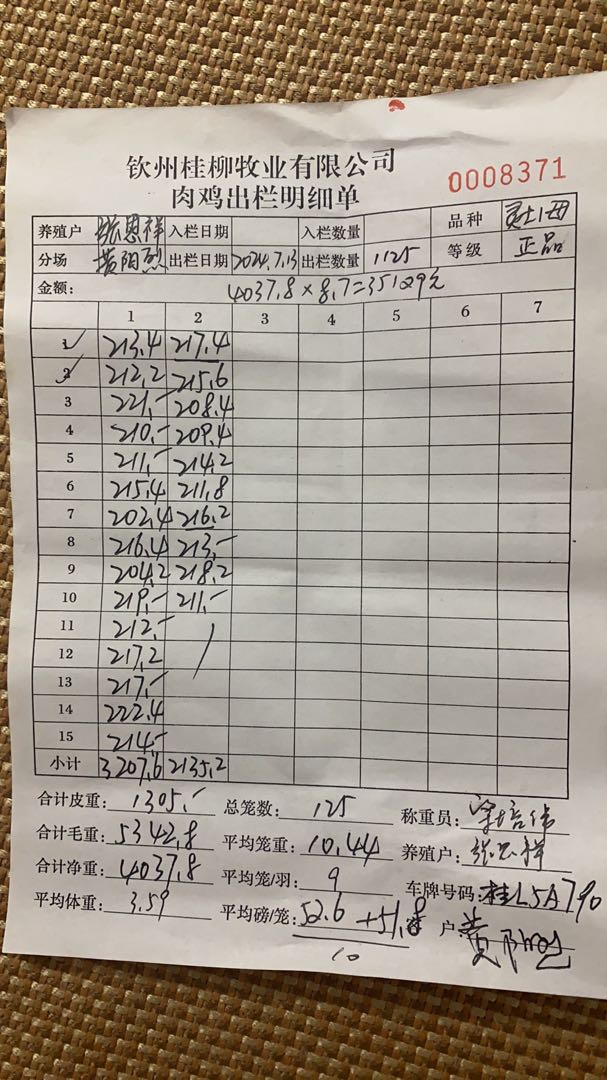 钦州桂柳牧业有限公司
肉鸡出栏明细单
0008371
养殖户 张思祥 入栏日期 入栏数量 品种
分场 出栏日期 2024.7.13 出栏数量 1125 等级 正品
金额: 4037.8×8.7=35129元
1 2 3 4 5 6 7
1 213.4 217.4
2 212.2 215.6
3 221.- 208.4
4 210.- 209.4
5 211.- 214.2
6 215.4 211.8
7 202.4 216.2
8 216.4 213.-
9 204.2 218.2
10 219.- 211.-
11 212.-
12 217.2
13 217.-
14 222.4
15 214.-
小计 3207.6 2135.2
合计皮重: 1305.- 总笼数: 125 称重员: 梁培伟
合计毛重: 5342.8 平均笼重: 10.44 养殖户: 张思祥
合计净重: 4037.8 平均笼/羽: 9 车牌号码: 桂L5A790
平均体重: 3.59 平均磅/笼: 52.6+51.8 户: 黄
10